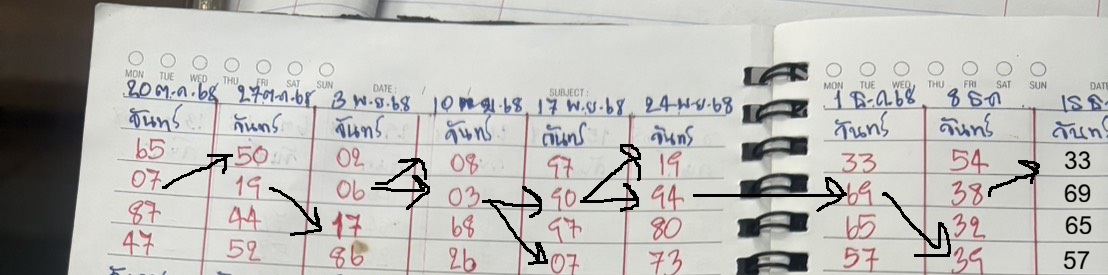 MON TUE WED THU FRI SAT SUN DATE: SUBJECT: MON TUE WED THU FRI SAT SUN DATE
20 ต.ค.68 27 ต.ค.68 3 พ.ย.68 10 พ.ย.68 17 พ.ย.68 24 พ.ย.68 1 ธ.ค.68 8 ธ.ค 15 ธ
จันทร์ จันทร์ จันทร์ จันทร์ จันทร์ จันทร์ จันทร์ จันทร์ จันทร์
65 50 02 08 97 19 33 54 33
07 19 06 03 90 94 69 38 69
87 44 17 68 97 80 65 32 65
47 52 86 26 07 73 57 39 57